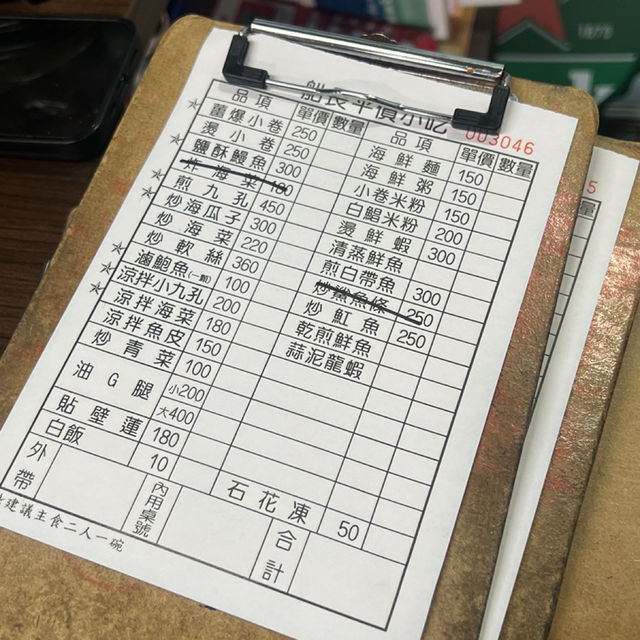 船長平價小吃
003046
品項 單價 數量 品項 單價 數量
薑爆小卷 250 海鮮麵 150
燙小卷 250 海鮮粥 150
鹽酥鰻魚 300 小卷米粉 150
海菜 100 白鯧米粉 200
煎九孔 450 燙鮮蝦 300
炒海瓜子 300 清蒸鮮魚
炒海菜 220 煎白帶魚 300
炒軟絲 360 炒鯊魚條 250
滷鮑魚(一顆) 100 炒魟魚 250
涼拌小九孔 200 乾煎鮮魚
涼拌海菜 180 蒜泥龍蝦
涼拌魚皮 150
炒青菜 100
油G腿 小200
大400
貼壁蓮 180
白飯 10 石花凍 50
外帶 內用桌號 合計
建議主食二人一碗
5
量
1873